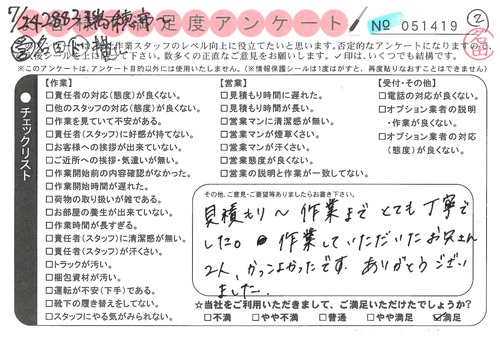 足度アンケート
No 051419 ②
作業スタッフのレベル向上に役立てたいと思います。否定的なアンケートになりますので、
お願いします。✓印は、いくつでも結構です。
※このアンケートは、アンケート目的以外には使用いたしません。(※情報保護シールは1度はがすと、再度貼りなおすことはできません)
チェックリスト
【作業】
□責任者の対応(態度)が良くない。
□他のスタッフの対応(態度)が良くない。
□作業を見ていて不安がある。
□責任者(スタッフ)に好感が持てない。
□お客様への挨拶が出来ていない。
□ご近所への挨拶・気遣いが無い。
□作業開始前の内容確認がなかった。
□作業開始時間が遅れた。
□荷物の取り扱いが雑である。
□お部屋の養生が出来ていない。
□作業時間が長すぎる。
□責任者(スタッフ)に清潔感が無い。
□責任者(スタッフ)が汗くさい。
□トラックが汚い。
□梱包資材が汚い。
□運転が不安(下手)である。
□靴下の履き替えをしてない。
□スタッフにやる気がみられない。
【営業】
□見積もり時間に遅れた。
□見積もり時間が長い。
□営業マンに清潔感が無い。
□営業マンが煙草くさい。
□営業マンが汗くさい。
□営業態度が良くない。
□営業の説明と作業が一致してない。
【受付・その他】
□電話の対応が良くない。
□オプション業者の説明
・作業が良くない。
□オプション業者の対応
(態度)が良くない。
その他、ご意見・ご要望等ありましたらお書き下さい。
見積もり〜作業まで とても丁寧で
した。 作業していただいたお兄さん
2人、かっこよかったです。ありがとうござい
ました。
☆当社をご利用いただきまして、ご満足いただけたでしょうか?
□不満 □やや不満 □普通 □やや満足 ☑満足